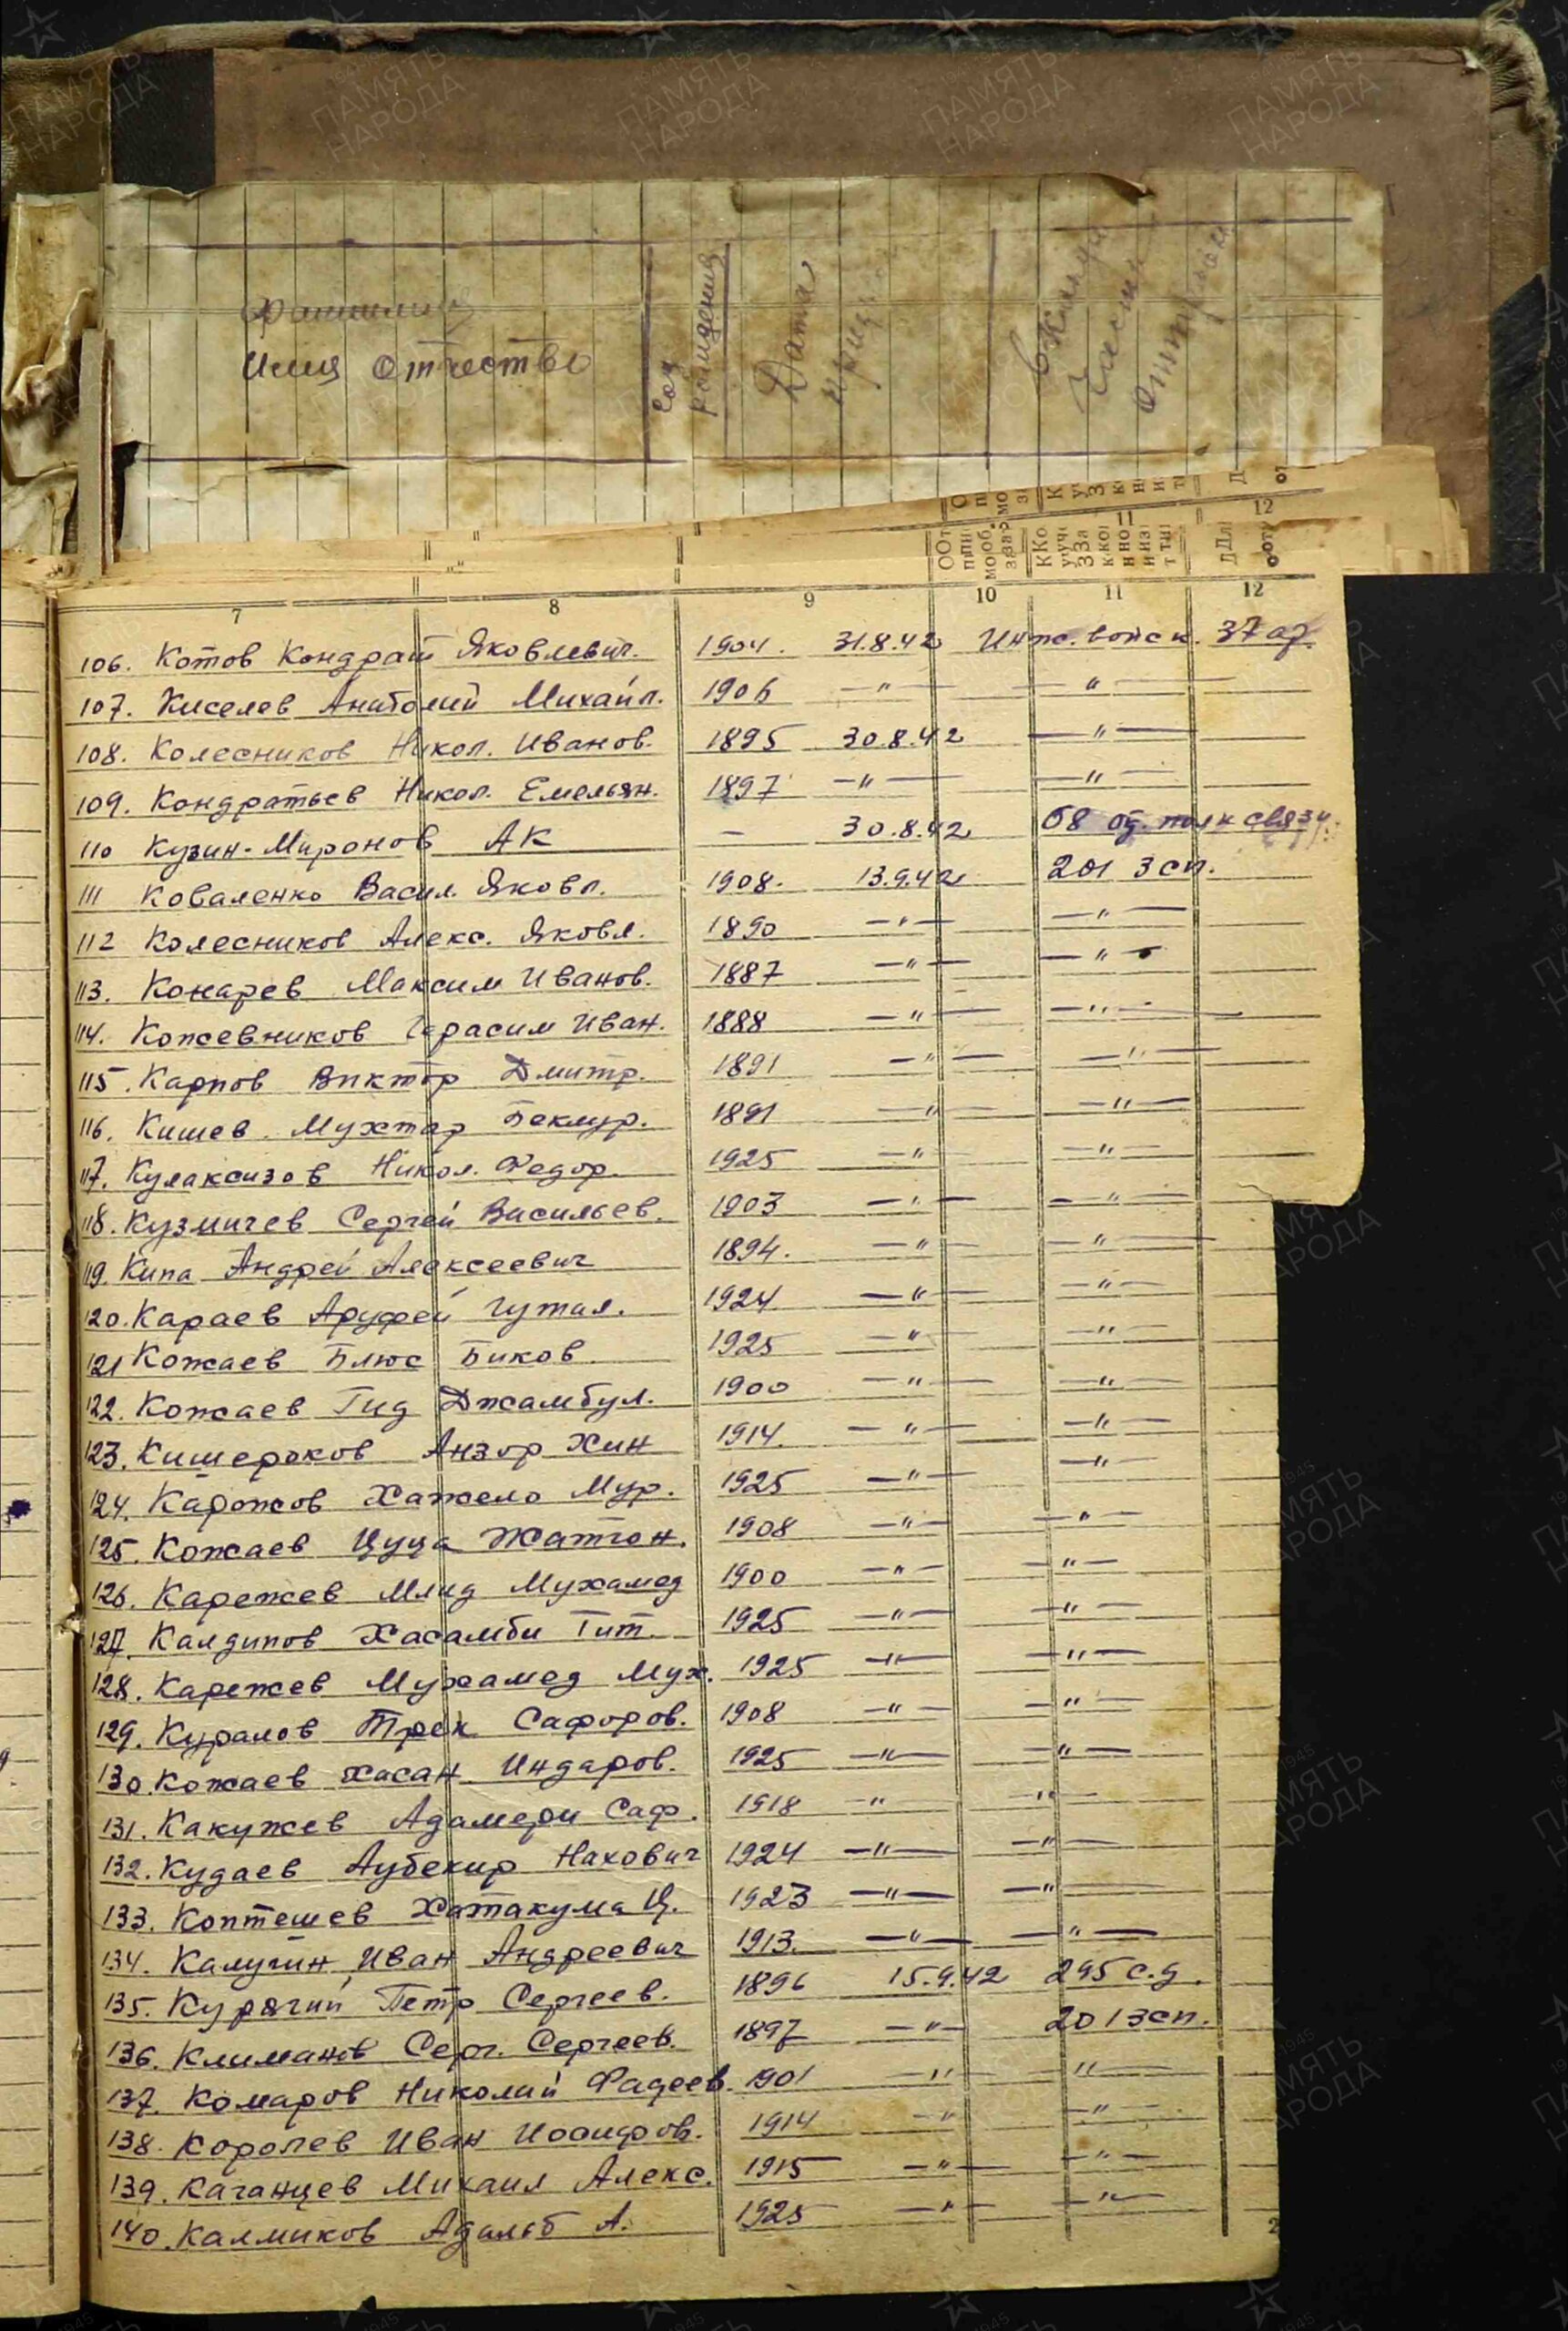 Фамилия
Имя Отчество
год рождения
Дата
в какую часть отправлен
7 8 9 10 11 12
106. Котов Кондрат Яковлевич. 1904. 31.8.42 Инж. войск. 37 ар.
107. Киселев Анатолий Михайл. 1906 —"— —"—
108. Колесников Никол. Иванов. 1895 30.8.42 —"—
109. Кондратьев Никол. Емельян. 1897 —"— —"—
110 Кузин-Миронов АК — 30.8.42 68 од. полк связи
111 Коваленко Васил. Яковл. 1908. 13.9.42 201 зсп.
112 Колесников Алекс. Яковл. 1890 —"— —"—
113. Конарев Максим Иванов. 1887 —"— —"—
114. Кожевников Герасим Иван. 1888 —"— —"—
115. Карпов Виктор Дмитр. 1891 —"— —"—
116. Кишев Мухтар Бекмур. 1891 —"— —"—
117. Кулаксизов Никол. Федор. 1925 —"— —"—
118. Кузмичев Сергей Васильев. 1903 —"— —"—
119. Кипа Андрей Алексеевич 1894. —"— —"—
120. Караев Аруфей Чутал. 1924 —"— —"—
121 Кожаев Блюс Биков 1925 —"— —"—
122. Кожаев Гид Джамбул. 1900 —"— —"—
123. Кишероков Анзор Хин 1914. —"— —"—
124. Карожов Хажело Мур. 1925 —"— —"—
125. Кожаев Цуца Жатгон. 1908 —"— —"—
126. Карежев Млид Мухамед 1900 —"— —"—
127. Калдипов Хасамби Гит. 1925 —"— —"—
128. Карежев Мухамед Мух. 1925 —"— —"—
129. Куралов Трек Сафоров. 1908 —"— —"—
130. Кожаев Хасан Индаров. 1925 —"— —"—
131. Какужев Адамери Саф. 1918 —"— —"—
132. Кудаев Аубекир Нахович 1924 —"— —"—
133. Коптешев Хатакума Ц. 1923 —"— —"—
134. Калугин Иван Андреевич 1913. —"— —"—
135. Курячий Петр Сергеев. 1896 15.9.42 295 с.д.
136. Климанов Серг. Сергеев. 1897 —"— 201 зсп.
137. Комаров Николай Фадеев. 1901 —"— —"—
138. Королев Иван Иосифов. 1914 —"— —"—
139. Каганцев Михаил Алекс. 1915 —"— —"—
140. Калмиков Адальб А. 1925 —"— —"—
ПАМЯТЬ НАРОДА